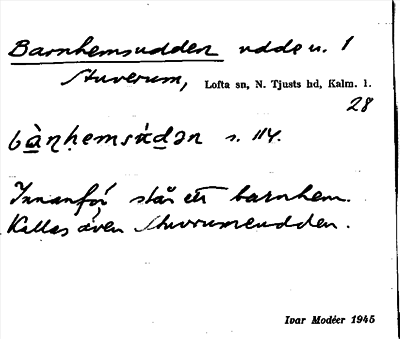 Barnhemsudden udde u. 1
Stuverum, Lofta sn, N. Tjusts hd, Kalm. l.
28
s. 114.
Innanför står ett barnhem.
Kallas även Stuverumeudden.
Ivar Modéer 1945